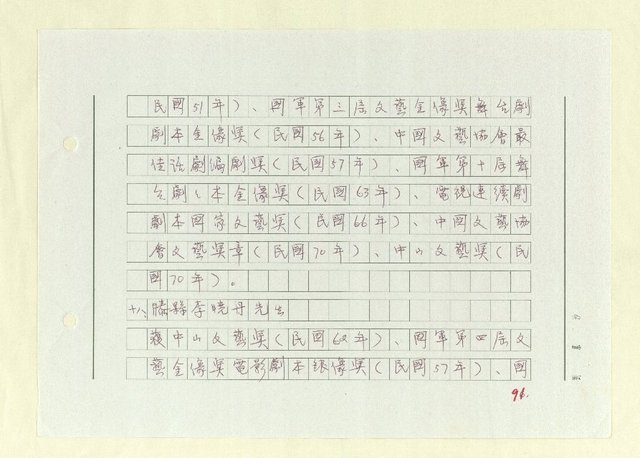 民國51年)、國軍第三屆文藝金像獎舞台劇
劇本金像獎(民國56年)、中國文藝協會最
佳話劇編劇獎(民國57年)、國軍第十屆舞
台劇劇本金像獎(民國63年)、電視連續劇
劇本國家文藝獎(民國66年)、中國文藝協
會文藝獎章(民國70年)、中山文藝獎(民
國70年)。
十八、滕縣李曉丹先生
獲中山文藝獎(民國62年)、國軍第四屆文
藝金像獎電影劇本銀像獎(民國57年)、國
96.